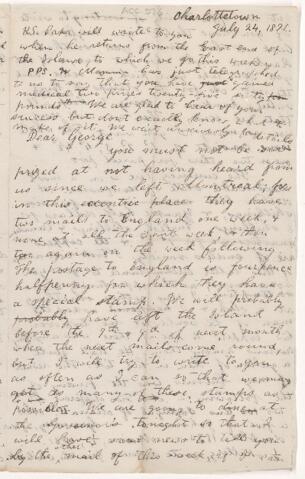 ACC 076
Charlottetown
July 24, 1871.
P.S. Papa will write to you
when he returns from the East end of
the Island to which we go this week
P.P.S. Mamma has just telegraphed
to us that you have just gained
medical two prizes twenty five &
pounds. We are glad to hear of your
success but don't exactly know what to
make of it. We wait anxiously for
Dear George
you must not be sur-
prized at not having heard from
us since we left Montreal, for
in this eccentric place they have
two mails to England one week, &
none at all the next week & then
two again on the week following
The postage to England is fourpence
halfpenny for which they have
a special stamp. We will probably
probably have left the Island
before the 9th of next month
when the next mails come round,
but I will try to write to you
as often as I can so that we may
get as many of these stamps as
possible. We are going to dine at
the Governor's tonight so that I
will have some news to tell you
by the other mail of this week